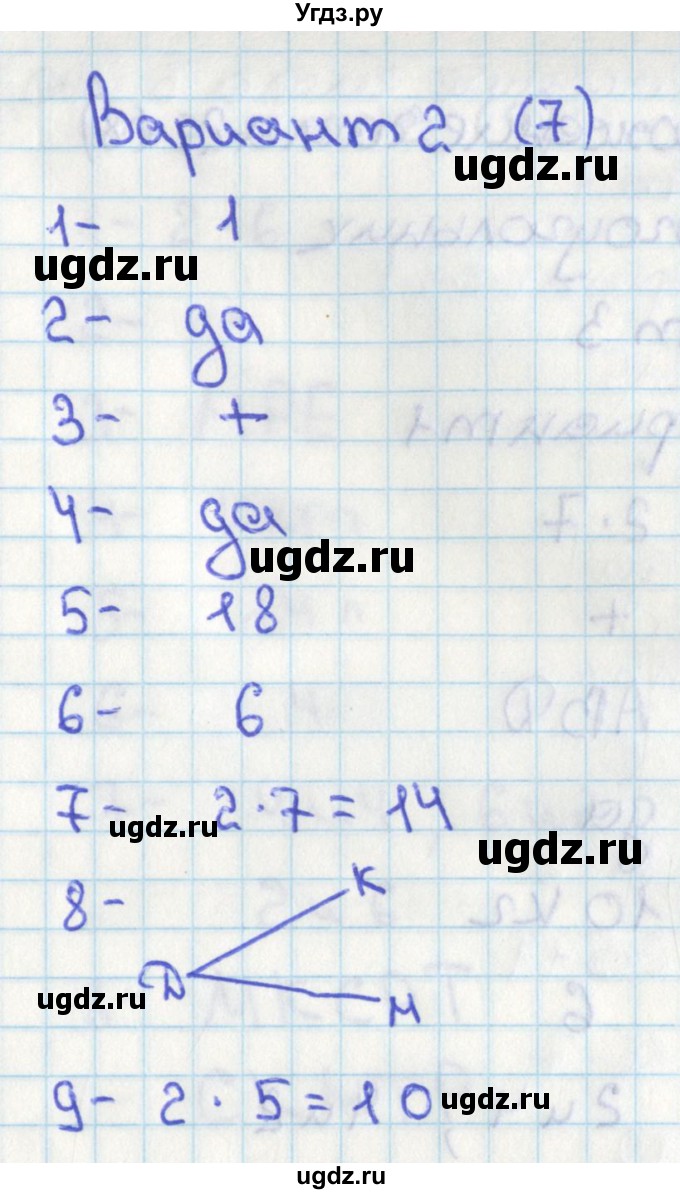 Угдз.ру
Вариант 2 (7)
ugdz.ru
1- 1
ugdz.ru
2- да
3- +
4- да
ugdz.ru
5- 18
6- 6
7- 2·7=14
ugdz.ru
ugdz.ru
8- К
Д
ugdz.ru
М
9- 2·5=10
ugdz.ru
ugdz.ru